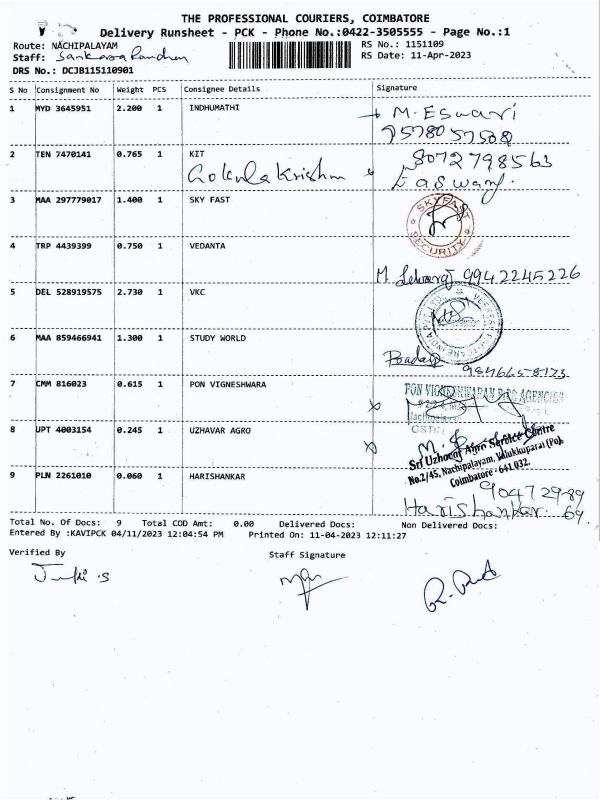 THE PROFESSIONAL COURIERS, COIMBATORE
Delivery Runsheet - PCK - Phone No.:0422-3505555 - Page No.:1
Route: NACHIPALAYAM
RS No.: 1151109
Staff:
RS Date: 11-Apr-2023
DRS No.: DCJB115110901
S No Consignment No Weight PCS Consignee Details Signature
1 MYD 3645951 2.200 1 INDHUMATHI M. Eswari
9578057508
2 TEN 7470141 0.765 1 KIT 8072798563
Gokulakrishnn Easwary.
3 MAA 297779017 1.400 1 SKY FAST
SKYFAST
SECURITY
4 TRP 4439399 0.750 1 VEDANTA
9942245226
5 DEL 528919575 2.730 1 VKC
6 MAA 859466941 1.300 1 STUDY WORLD
7 CMM 816023 0.615 1 PON VIGNESHWARA
PON VIGNESHWARAN AGENCIES
8 UPT 4003154 0.245 1 UZHAVAR AGRO
Sri Uzhavar Agro Service Centre
No.2/45, Nachipalayam, Valukkuparai (Po),
Coimbatore - 641 032.
9 PLN 2261010 0.060 1 HARISHANKAR 90472989
Harishankar. 69.
Total No. Of Docs: 9 Total COD Amt: 0.00 Delivered Docs: Non Delivered Docs:
Entered By :KAVIPCK 04/11/2023 12:04:54 PM Printed On: 11-04-2023 12:11:27
Verified By Staff Signature